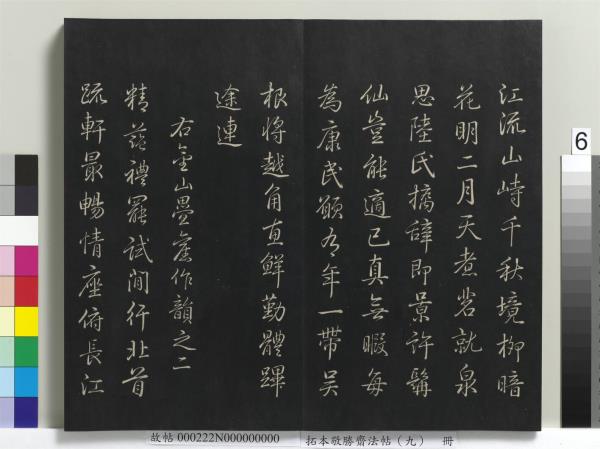 江流山峙千秋境柳暗
花明二月天煮茗就泉
思陸氏摛辭即景許髯
仙豈能適己真無暇每
為康民願有年一帶吴
根將越角直鮮勤體蹕
途連
右金山疊舊作韻之二
精藍禮罷試閒行北首
疏軒最暢情座俯長江
6
故帖 000222N000000000
拓本敬勝齋法帖(九) 冊